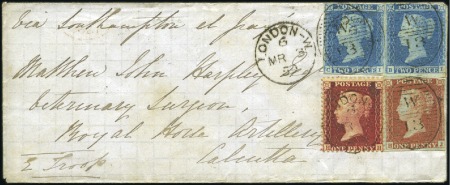 via Southampton et paid
LONDON-W
6
MR 3
59
Matthew John Harpley Esq
Veterinary Surgeon,
Royal Horse Artillery
E Troop
Calcutta
TWO PENCE
TWO PENCE
W
13
W
13
POSTAGE
POSTAGE
ONE PENNY
ONE PENNY
W
13